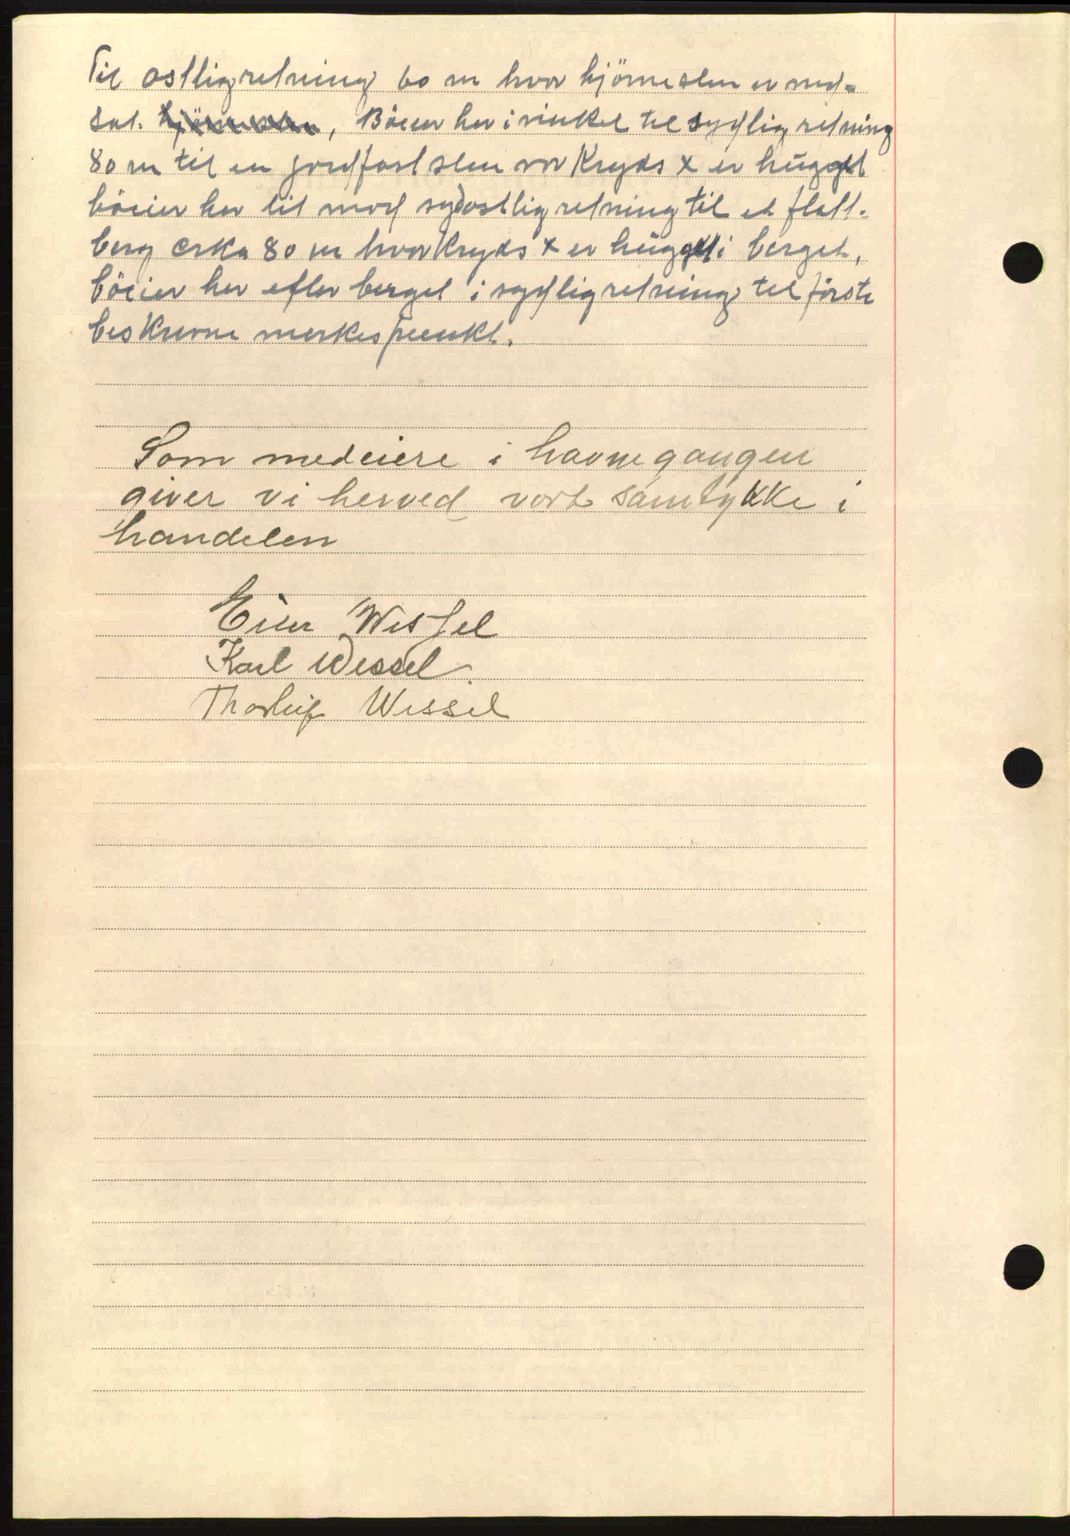 Til østlig retning 60 m hvor hjörnesten er ned-
sat. , Böier her i vinkel til sydlig retning
80 m til en jordfast sten vor Kryds x er hugget
böier her lit mod sydøstlig retning til et flatt-
berg cirka 80 m hvor Kryds x er hugget i berget,
böier her efter berget i sydlig retning til förste
beskrevne merkespunkt.
Som medeiere i havnegangen
giver vi herved vort samtykke i
handelen
Einar Wessel
Karl Wessel
Thorleif Wessel